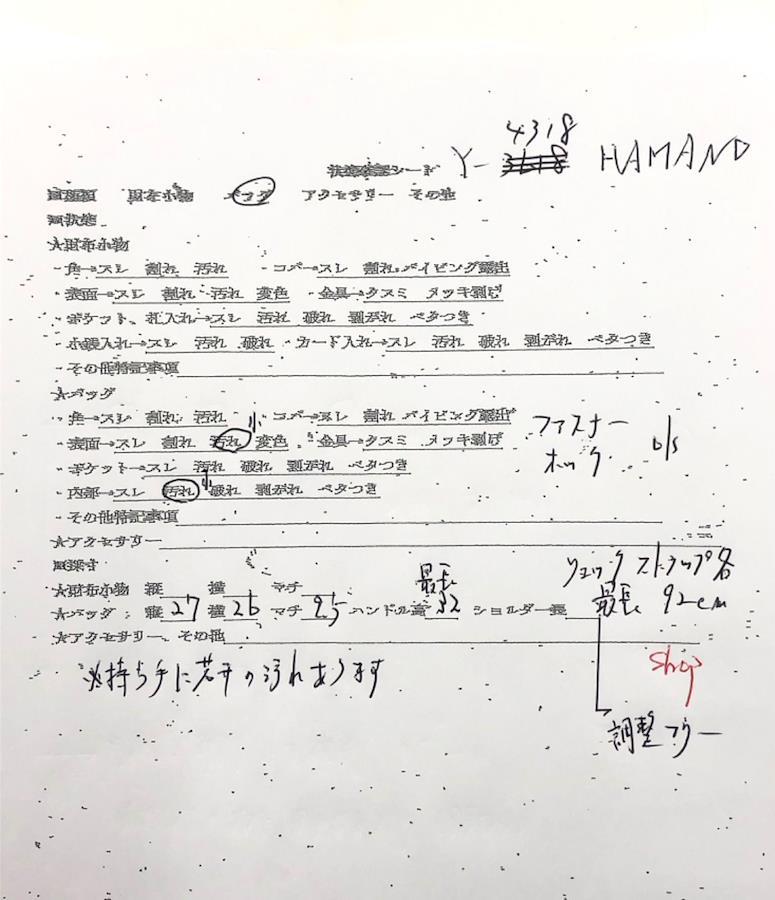 4318
状態確認シート Y- HAMANO
■種類 財布小物 バッグ アクセサリー その他
■状態
★財布小物
・角→スレ 割れ 汚れ ・コバ→スレ 割れ パイピング露出
・表面→スレ 割れ 汚れ 変色 ・金具→クスミ メッキ剥げ
・ポケット、札入れ→スレ 汚れ 破れ 剥がれ ベタつき
・小銭入れ→スレ 汚れ 破れ ・カード入れ→スレ 汚れ 破れ 剥がれ ベタつき
・その他特記事項
★バッグ
・角→スレ 割れ 汚れ 小 ・コバ→スレ 割れ パイピング露出
・表面→スレ 割れ 汚れ 変色 ・金具→クスミ メッキ剥げ
ファスナー
ホック
・ポケット→スレ 汚れ 破れ 剥がれ ベタつき
・内部→スレ 汚れ 小 破れ 剥がれ ベタつき
・その他特記事項
★アクセサリー
■採寸
★財布小物 縦 横 マチ
最長
リュックストラップ各
最長 92cm
★バッグ 縦 27 横 26 マチ ハンドル高 32 ショルダー長
★アクセサリー、その他
shop
※持ち手に若干の汚れあります
調整フリー